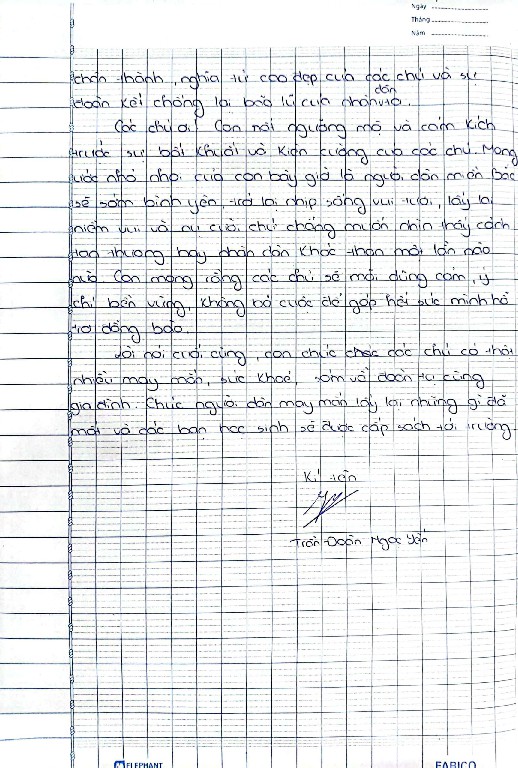 Ngày
Tháng
Năm
chân thành, nghĩa tử cao đẹp của các chú và sự
dân
đoàn kết chống lại bão lũ của nhân ta.
Các chú ơi! Con rất ngưỡng mộ và cảm kích
trước sự bất khuất và kiên cường của các chú. Mong
ước nhỏ nhoi của con bây giờ là người dân miền Bắc
sẽ sớm bình yên, trở lại nhịp sống vui tươi, lấy lại
niềm vui và nụ cười, chứ chẳng muốn nhìn thấy cảnh
tan thương hay nhân dân khóc than một lần nào
nữa. Con mong rằng các chú sẽ mãi dũng cảm, ý
chí bền vững, không bỏ cuộc để góp hết sức mình hỗ
trợ đồng bào.
Lời nói cuối cùng, con chúc các chú có thật
nhiều may mắn, sức khoẻ, sớm về đoàn tụ cùng
gia đình. Chúc người dân may mắn lấy lại những gì đã
mất và các bạn học sinh sẽ được cắp sách tới trường
Kí tên
Trần Đoàn Ngọc Yến
ELEPHANT
FABICO